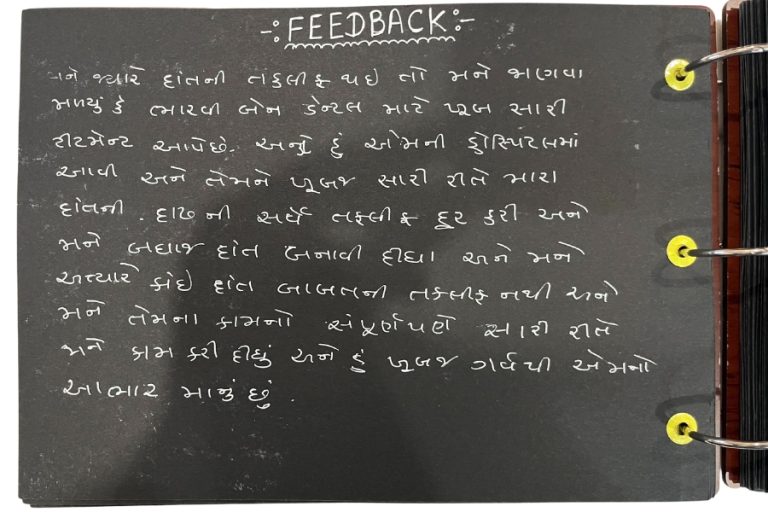 -: FEEDBACK :-
મને જ્યારે દાંતની તકલીફ થઈ તો મને જાણવા
મળ્યું કે ભારવી બેન ડેન્ટલ માટે ખૂબ સારી
ટીટમેન્ટ આપેછે. અને હું એમની હોસ્પિટલમાં
આવી અને તેમને ખૂબજ સારી રીતે મારા
દાંતની . દાઢ ની સર્વે તકલીફ દૂર કરી અને
મને બધાજ દાંત બનાવી દીધા અને મને
અત્યારે કોઈ દાંત બાબતની તકલીફ નથી અને
મને તેમના કામનો સંપૂર્ણપણે સારી રીતે
મને કામ કરી દીધું અને હું ખૂબજ ગર્વથી એમનો
આભાર માનું છું .